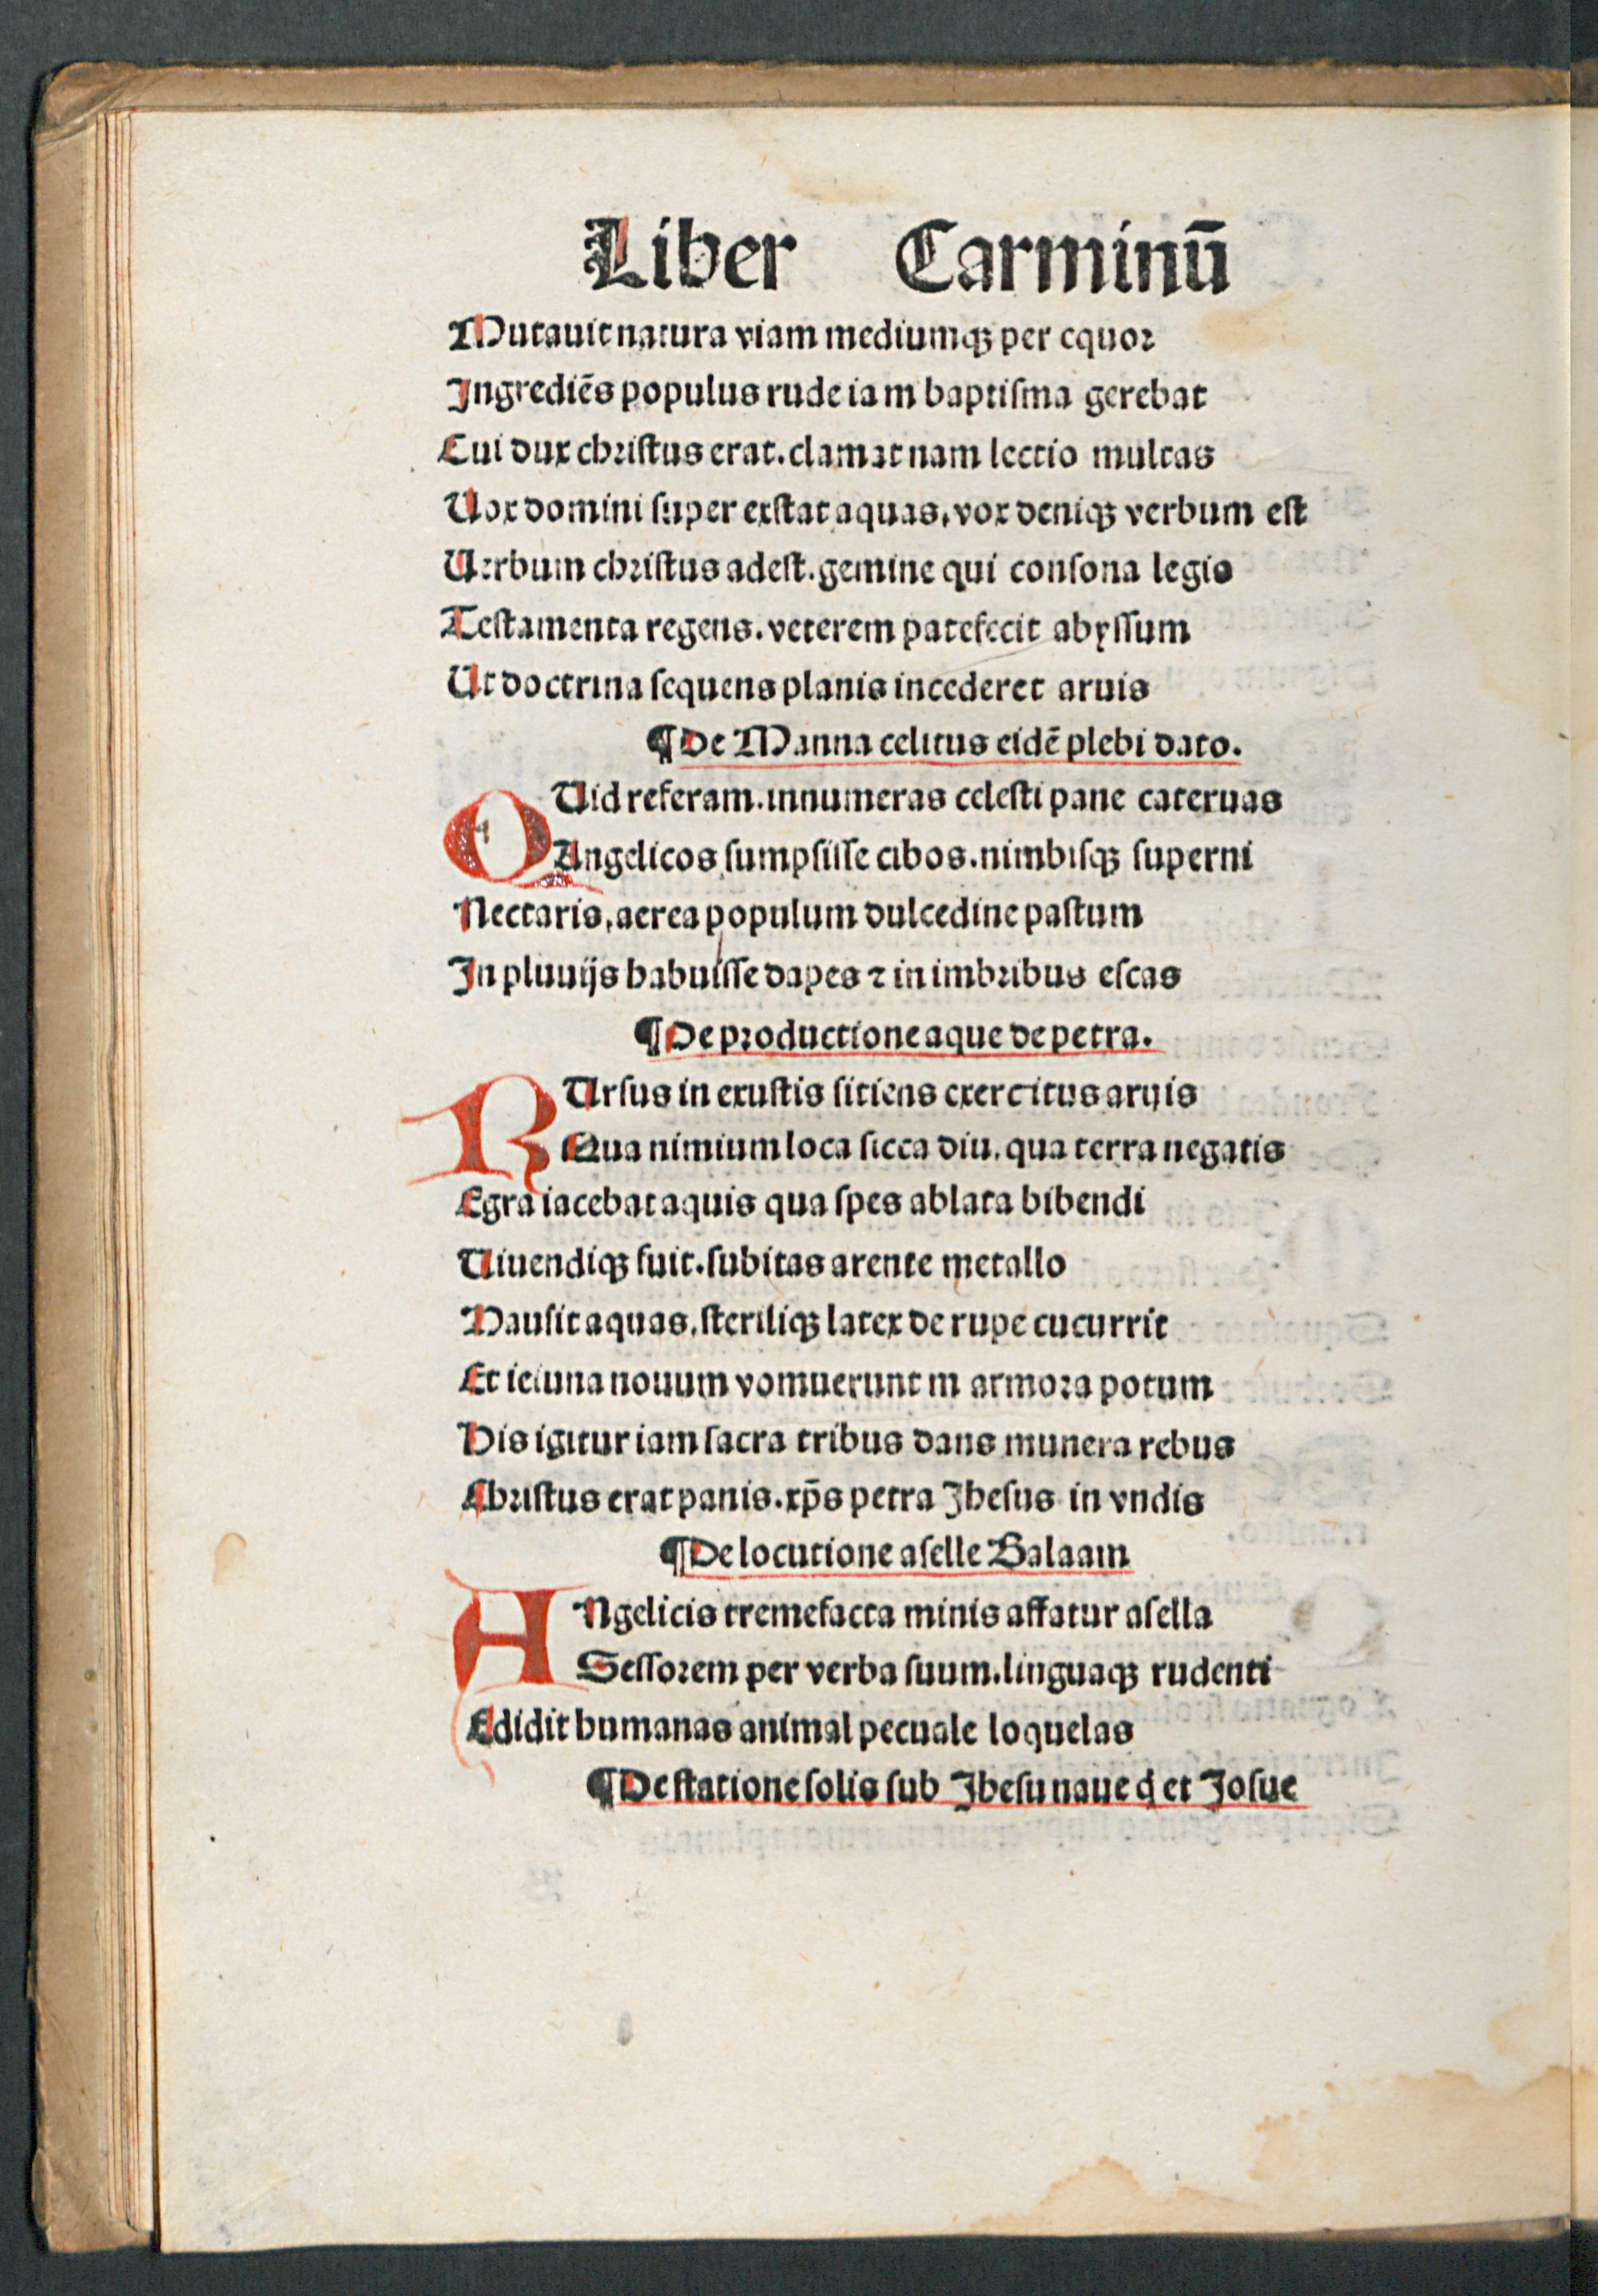 Liber Carminū
Mutauit natura viam mediumqꝫ per equor
Ingrediēs populus rude iam baptiſma gerebat
Cui dux chriſtus erat. clamat nam lectio multas
Uox domini ſuper exſtat aquas, vox deniqꝫ verbum eſt
Uerbum chriſtus adeſt. gemine qui conſona legis
Teſtamenta regens. veterem patefecit abyſſum
Ut doctrina ſequens planis incederet aruis
¶De Manna celitus eidē plebi dato.
QUid referam. innumeras celeſti pane cateruas
Angelicos ſumpſiſſe cibos. nimbiſqꝫ ſuperni
Nectaris, aerea populum dulcedine paſtum
In pluuijs habuiſſe dapes ⁊ in imbribus eſcas
¶De productione aque de petra.
RUrſus in exuſtis ſitiens exercitus aruis
Qua nimium loca ſicca diu, qua terra negatis
Egra iacebat aquis qua ſpes ablata bibendi
Uiuendiqꝫ fuit. ſubitas arente metallo
Hauſit aquas, ſteriliqꝫ latex de rupe cucurrit
Et ieiuna nouum vomuerunt m armora potum
His igitur iam ſacra tribus dans munera rebus
Chriſtus erat panis. xp̄s petra Iheſus in vndis
¶De locutione aſelle Balaam
ANgelicis tremefacta minis affatur aſella
Seſſorem per verba ſuum. linguaqꝫ rudenti
Edidit humanas animal pecuale loquelas
¶De ſtatione ſolis ſub Iheſu naue q̇ et Joſue